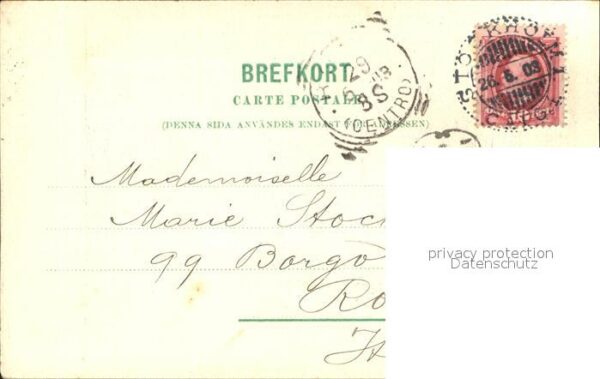 BREFKORT.
CARTE POSTALE
(DENNA SIDA ANVÄNDES ENDAST FÖR ADRESSEN)
29
8 S
(CENTRO)
STOCKHOLM 1
26.6.03
Mademoiselle
Marie Stoc
99 Borgo
Ro
privacy protection
Datenschutz